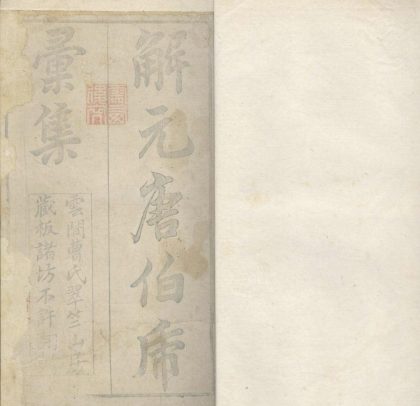 解元唐伯虎
彙集
雲間曹氏翠竺山
藏板諸坊不許